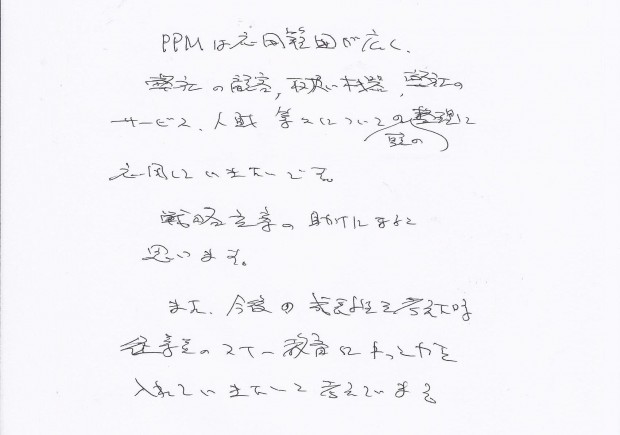 PPMは応用範囲が広く、
弊社の顧客、取扱い機器、弊社の
サービス、人財 等々についての整理に
頭の
応用していきたいです。
戦略立案の助けになると
思います。
また、今後の成長性を考えた時
従業員のスキル教育にもっと力を
入れていきたいと考えています。